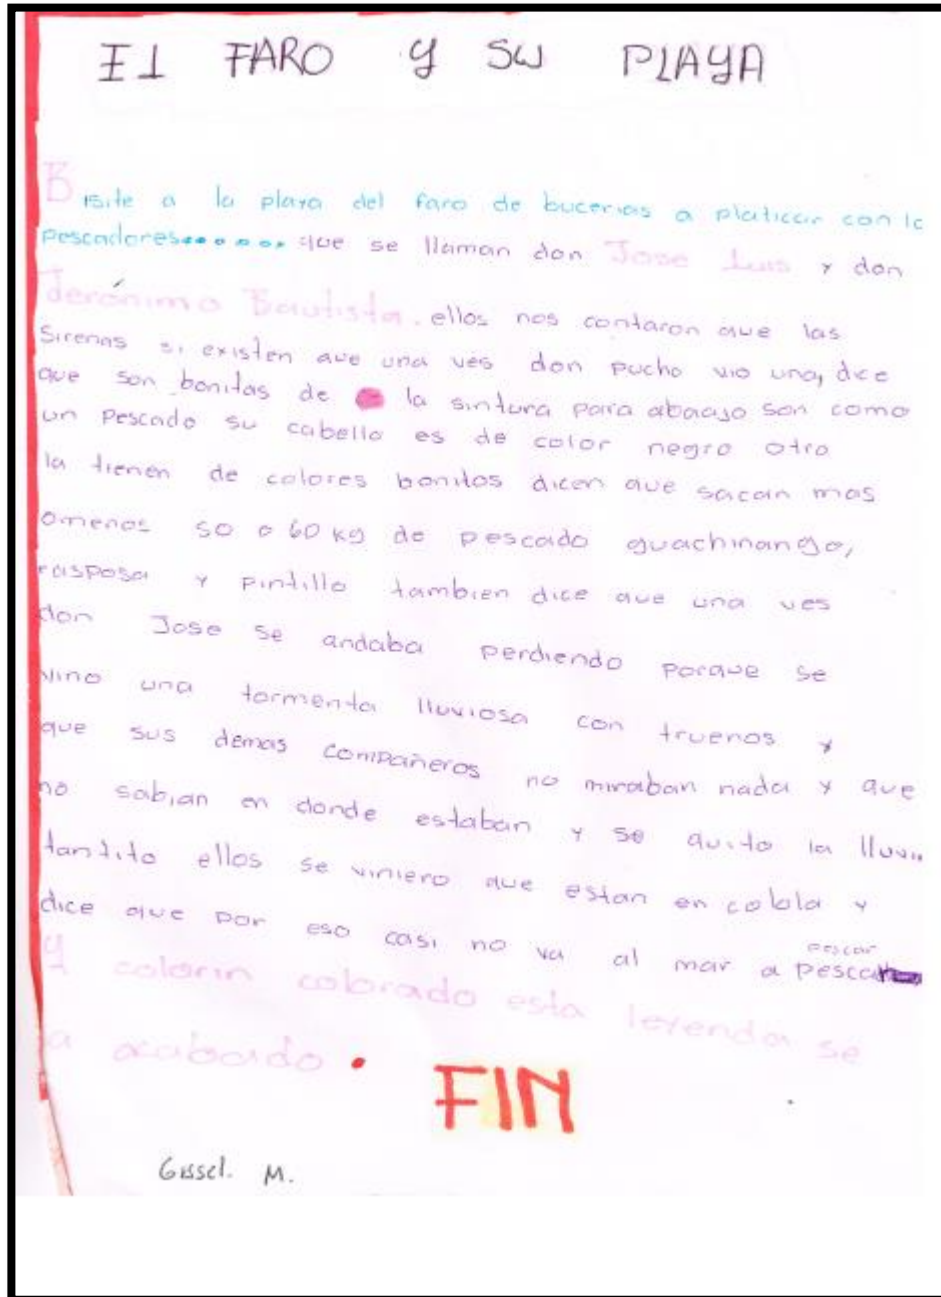 El FARO y SU PLAYA
Bisite a la playa del faro de bucerias a platicar con lo
pescadores....... que se llaman don Jose Luis y don
Jerónimo Bautista. ellos nos contaron que las
Sirenas si existen que una ves don pucho vio una, dice
que son bonitas de la sintura para abaajo son como
un pescado su cabello es de color negro otro
la tienen de colores bonitos dicen que sacan mas
omenos 50 o 60 kg de pescado guachinango,
rasposa y pintillo tambien dice que una ves
don Jose se andaba perdiendo porque se
vino una tormenta lluviosa con truenos y
que sus demas compañeros no miraban nada y que
no sabian en donde estaban y se quito la lluvia
tantito ellos se viniero que estan en colola y
dice que por eso casi no va al mar a pescar
pescar
y colorin colorado esta leyenda se
a acabado.
FIN
Gissel. M.